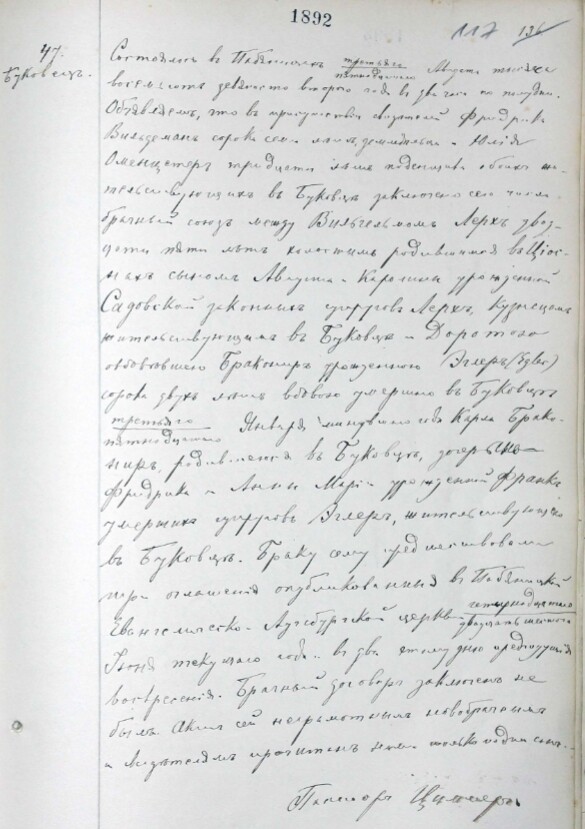 1892
117 136
47.
Буковецъ.
Состоялось въ Пабяницахъ третьяго Августа тысяча
пятнадцатаго
восемьсотъ девяносто второго года въ два часа по полудни.
Объявляемъ, что въ присутствіи свидѣтелей Фридриха
Вильдеманъ сорока семи лѣтъ, и
тридцати лѣтъ обоихъ жи-
тельствующихъ въ Буковцѣ заключенъ сего числа
брачный союзъ между Вильгельмомъ Лерхъ двад-
цати пяти лѣтъ холостымъ родившимся въ
сыномъ Августа и Каролины урожденной
Садовской законныхъ супруговъ Лерхъ, кузнецомъ
жительствующимъ въ Буковцѣ и Доротою
овдовѣвшею Бракониръ урожденною Эглеръ (Egler)
сорока двухъ лѣтъ вдовою умершаго въ Буковцѣ
третьяго Января минувшаго года Карла Брако-
пятнадцатаго
ниръ, родившеюся въ Буковцѣ, дочерью
Фридриха и Анны Маріи урожденной Франке
умершихъ супруговъ Эглеръ, жительствующею
въ Буковцѣ. Браку сему предшествовали
три оглашенія опубликованныя въ Пабяницкой
Евангелическо-Аугсбургской церкви четырнадцатаго
двадцать шестаго
Іюня текущаго года и въ два этому дню предъидущія
воскресенія. Брачный договоръ заключенъ не
былъ. Актъ сей неграмотнымъ новобрачнымъ
и свидѣтелямъ прочитанъ нами только подписанъ.
Пасторъ Циммеръ